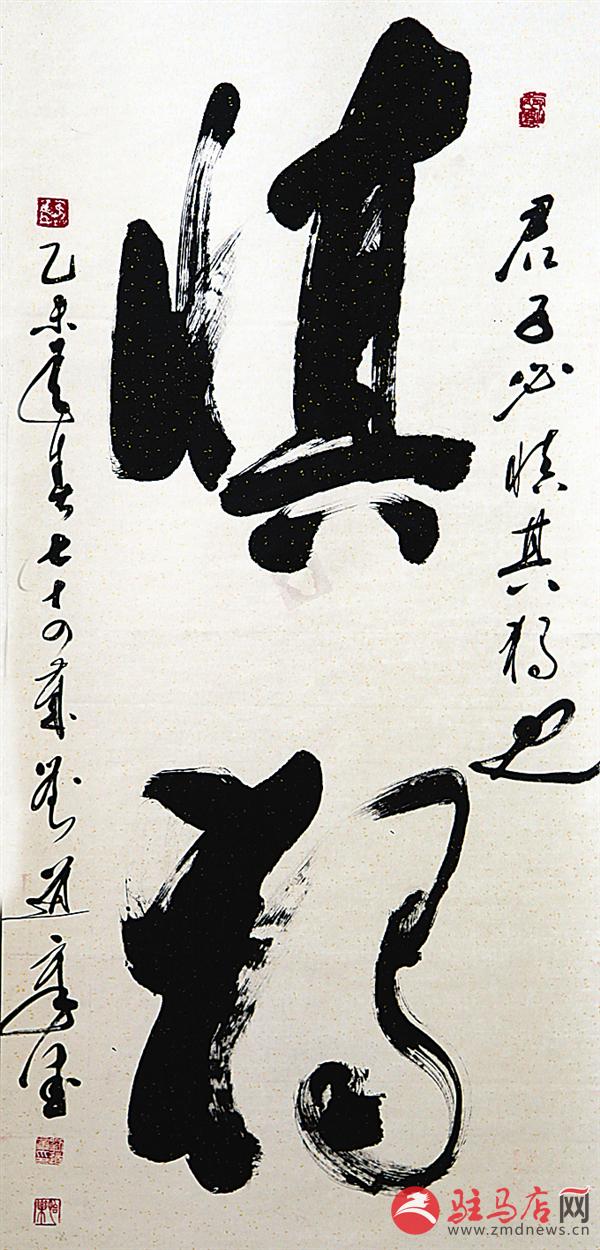 君子必慎其独也
慎独
乙未春七十四歲
驻马店网
www.zmdnews.cn